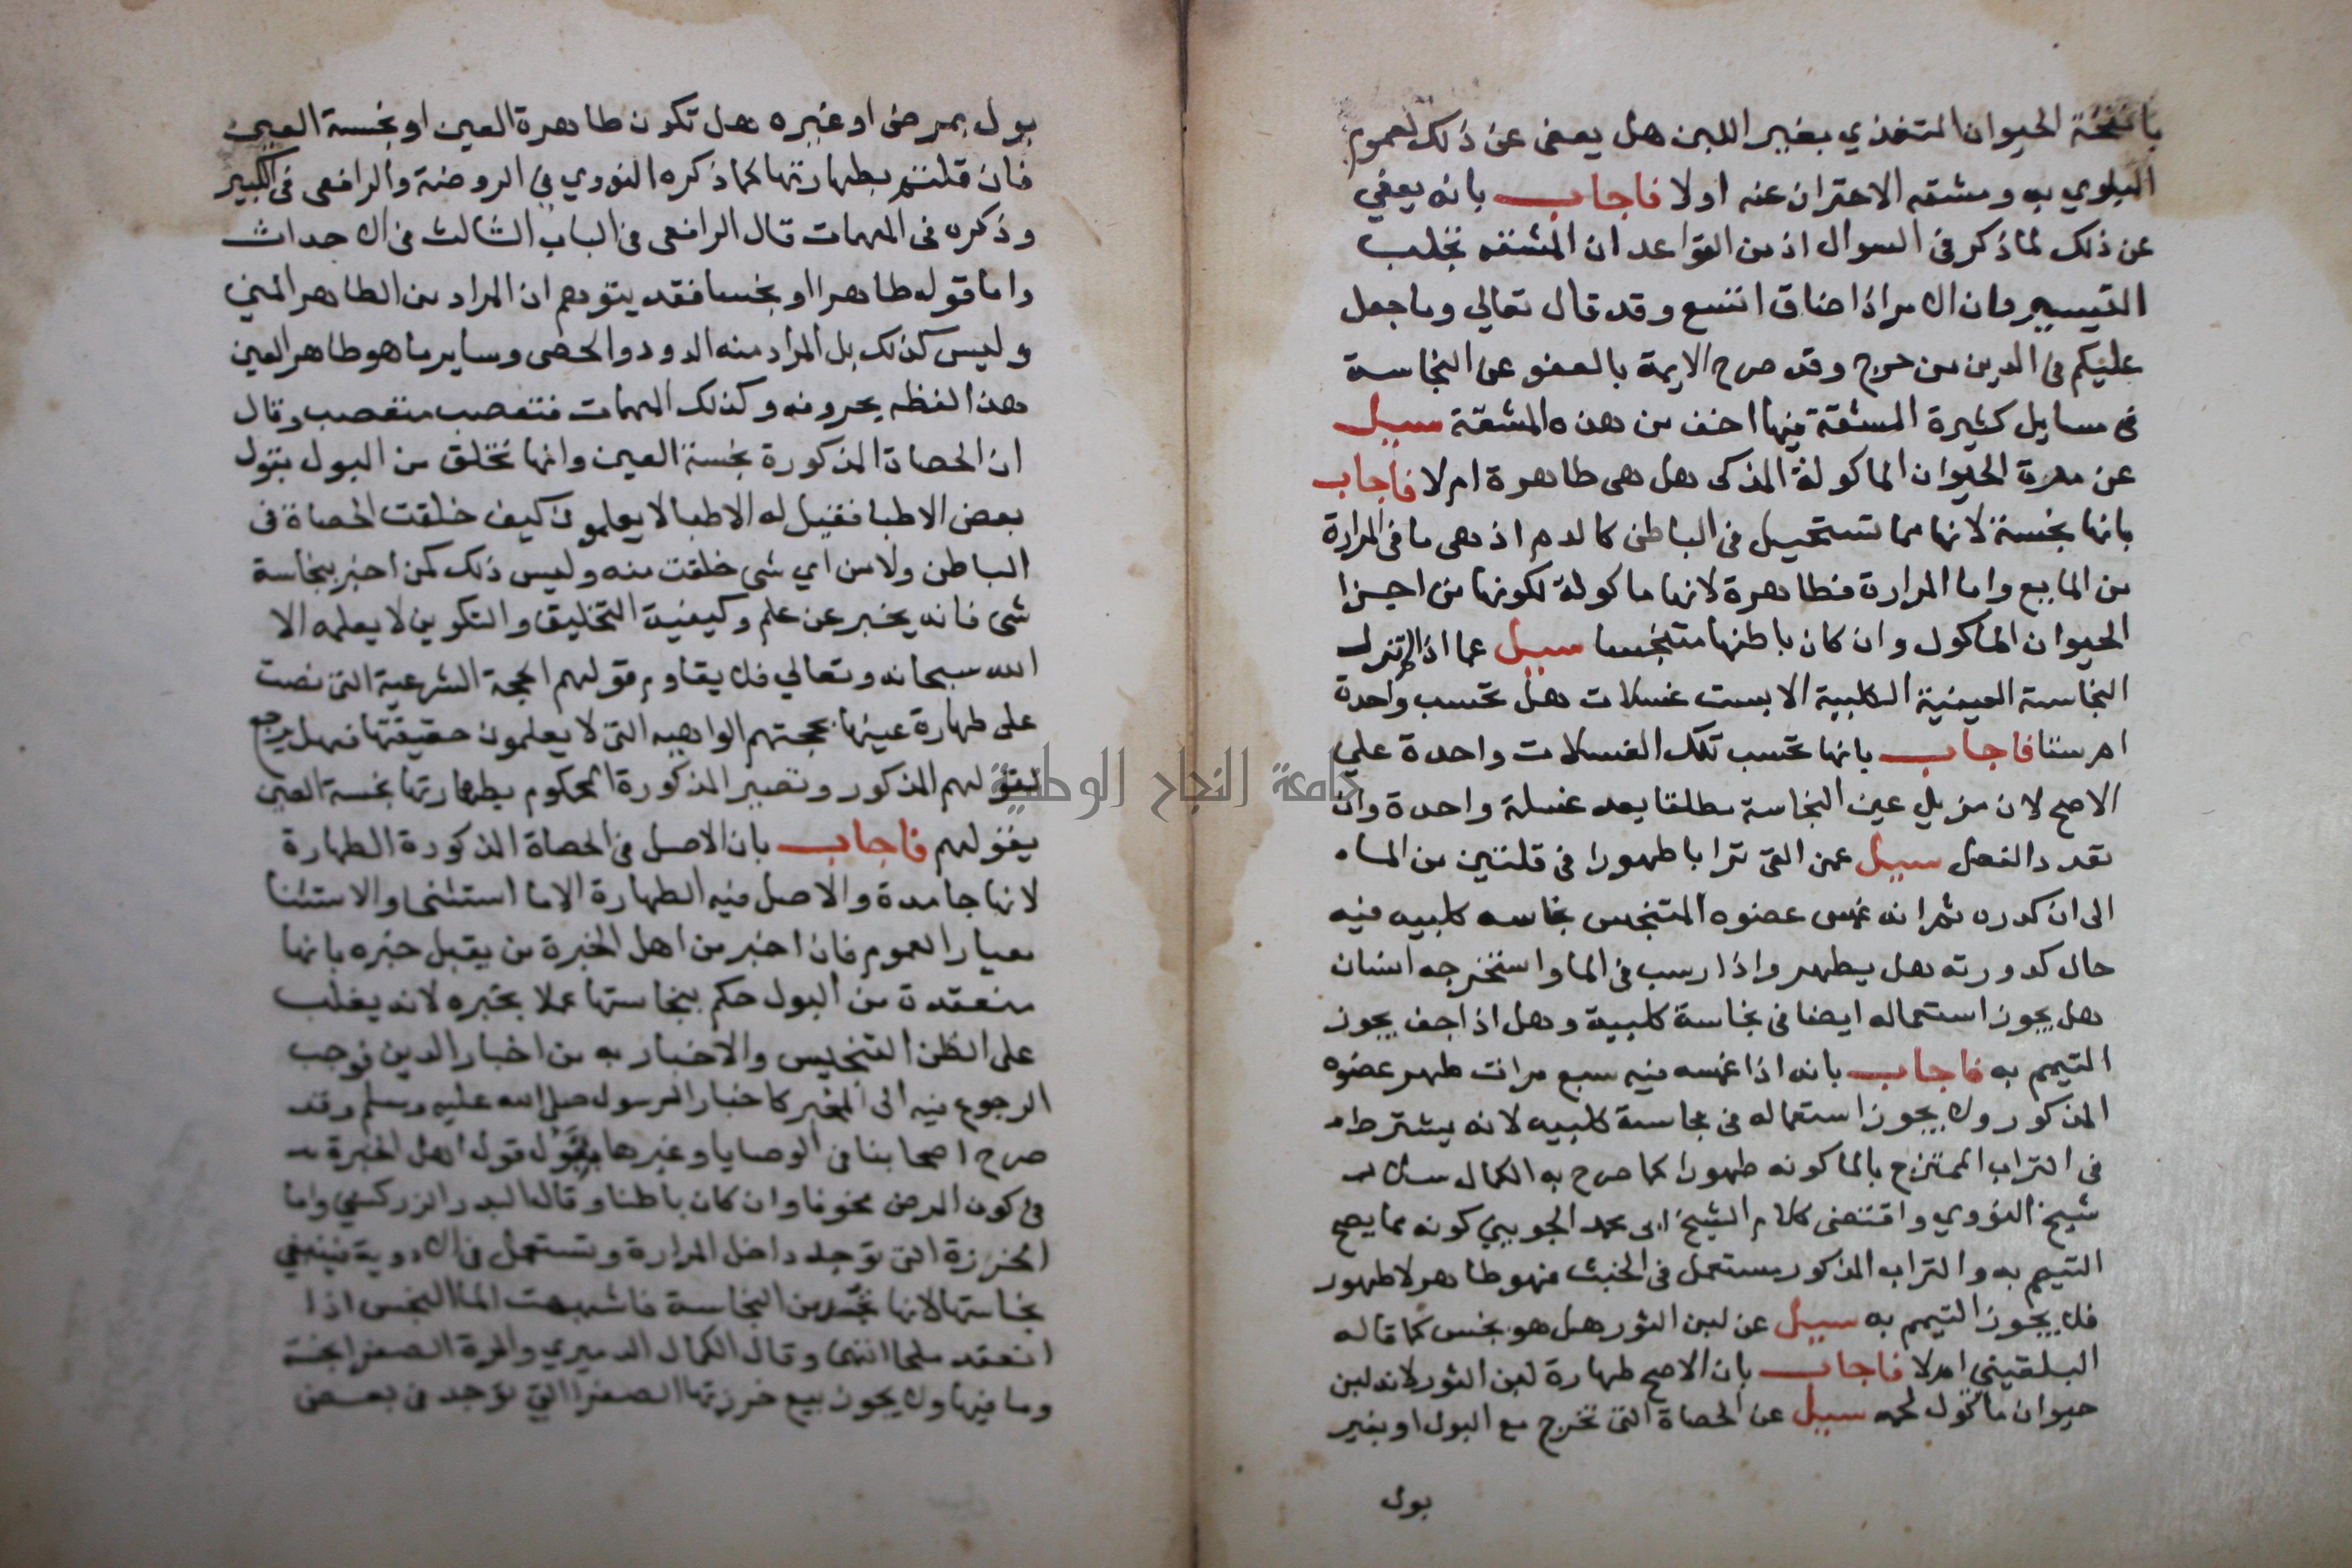 بانفخة الحيوان المتغذي بغير اللبن هل يعفى عن ذلك لعموم
البلوي به ومشقه الاحتراز عنه اولا فاجاب بانه يعفي
عن ذلك لما ذكر في السوال اذ من القواعد ان المشقه تجلب
التيسير وان الامر اذا ضاق اتسع وقد قال تعالي وما جعل
عليكم في الدين من حرج وقد صرح الايمة بالعفو عن النجاسة
في مسايل كثيرة المشقة فيها اخف من هذه المشقة سيل
عن مرة الحيوان الماكولة المذكى هل هى طاهرة ام لا فاجاب
بانها نجسة لانها مما تستحيل في الباطن كالدم اذ هى ما في المرارة
من المايع واما المرارة فطاهرة لانها ماكولة لكونها من اجزا
الحيوان الماكول وان كان باطنها متنجسا سيل عما اذا لم تزل
النجاسة العينية الكلبية الا بست غسلات هل تحسب واحدة
ام ستا فاجاب بانها تحسب تلك الغسلات واحدة علي
الاصح لان مزيل عين النجاسة مطلقا يعد غسلة واحدة وان
تعدد الفعل سيل عمن القى ترابا طهورا في قلتين من الماء
الى ان كدره ثم انه غمس عضوه المتنجس نجاسه كلبيه فيه
حال كدورته هل يطهر واذا رسب في الما واستخرجه انسان
هل يجوز استعماله ايضا في نجاسة كلبية وهل اذا جف يجوز
التيمم به فاجاب بانه اذا غمسه فيه سبع مرات طهر عضوه
المذكور ولا يجوز استعماله في نجاسة كلبيه لانه يشترط
في التراب الممتزج بالما كونه طهورا كما صرح به الكمال سلار
شيخ النووي واقتضى كلام الشيخ ابى محمد الجويني كونه مما يصح
التيمم به والتراب المذكور مستعمل في الخبث فهو طاهر لا طهور
فلا يجوز التيمم به سيل عن لبن الثور هل هو نجس كما قاله
البلقيني ام لا فاجاب بان الاصح طهارة لبن الثور لانه لبن
حيوان ماكول لحمه سيل عن الحصاة التى تخرج مع البول او بغير
بول
بول بمرض او غيره هل تكون طاهرة العين او نجسة العين
فان قلتم بطهارتها كما ذكره النووي في الروضة والرافعى في الكبير
وذكره في المهمات قال الرافعى في الباب الثالث في الاحداث
واما قوله طاهرا او نجسا فقد يتوهم ان المراد من الطاهر المني
وليس كذلك بل المراد منه الدود والحصى وساير ما هو طاهر العين
هذا لفظه بحروفه وكذلك المهمات فتعصب متعصب وقال
ان الحصاة المذكورة نجسة العين وانها تخلق من البول بقول
بعض الاطبا فقيل له الاطبا لا يعلمون كيف خلقت الحصاة في
الباطن ولا من اي شى خلقت منه وليس ذلك كمن اخبر بنجاسة
شى فانه يخبر عن علم وكيفية التخليق والتكوين لا يعلمه الا
الله سبحانه وتعالي فلا يقاوم قولهم الحجة الشرعية التى نصت
على طهارة عينها بحجتهم الواهيه التى لا يعلمون حقيقتها فهل يرجع
لقولهم المذكور وتصير المذكورة المحكوم بطهارتها نجسة العين
بقولهم فاجاب بان الاصل في الحصاة المذكورة الطهارة
لانها جامدة والاصل فيه الطهارة الا ما استثنى والاستثنا
معيار العموم فان اخبر من اهل الخبرة من يقبل خبره بانها
منعقدة من البول حكم بنجاستها عملا بخبره لانه يغلب
على الظن التنجيس والاخبار به من اخبار الدين فوجب
الرجوع فيه الى المخبر كاخبار الرسول صلى الله عليه وسلم وقد
صرح اصحابنا في الوصايا وغيرها بقبول قول اهل الخبرة
في كون المرض مخوفا وان كان باطنا وقال البدر الزركشي واما
الخرزة التى توجد داخل المرارة وتستعمل في الادوية فينبغي
نجاستها لانها تجمدت من النجاسة فاشبهت الما النجس اذا
انعقد ملحا انتهى وقال الكمال الدميري والمرة الصفرا نجسة
وما فيها ولا يجوز بيع خرزتها الصفرا التى توجد في بعض
جامعة النجاح الوطنية